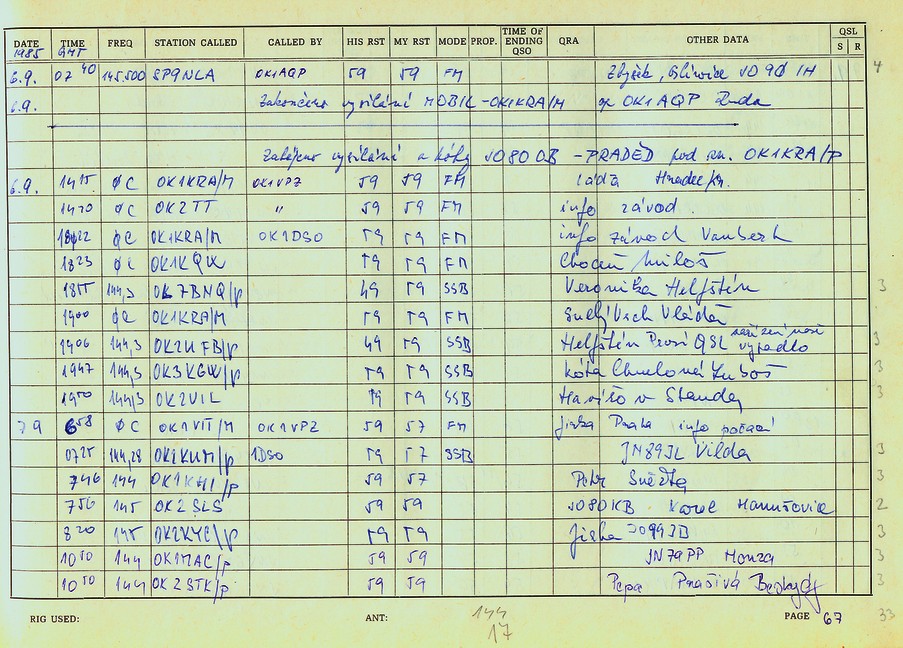 DATE TIME FREQ STATION CALLED CALLED BY HIS RST MY RST MODE PROP. TIME OF ENDING QSO QRA OTHER DATA QSL S R
1985 GMT
6.9. 07 40 145.500 SP9NLA OK1AQP 59 59 FM Gliwice JO90 IH 4
6.9. Zakončeno vysílání MOBIL - OK1KRA/M op OK1AQP
Zahájeno vysílání z kóty JO80OB - PRADĚD pod zn. OK1KRA/P
6.9. 1415 ØC OK1KRA/M OK1VPZ 59 59 FM Láďa Hradec Kr.
1420 ØC OK2TT " 59 59 FM info závod
1822 ØC OK1KRA/M OK1DSO 59 59 FM info závod Vamberk
1823 ØC OK1KQW 59 59 FM Choceň Miloš
1855 144,3 OK7BNQ/P 49 59 SSB Veronika Helfštýn 3
1900 ØC OK1KRA/M 59 59 FM Suchý Vrch Vláďa
1906 144,3 OK2UFB/P 49 59 SSB Helfštýn Prosí QSL 3
1947 144,3 OK3KGW/P 59 59 SSB kóta Luboš 3
1950 144,3 OK2VIL 59 59 SSB Havířov Standa 3
7 9 658 ØC OK1VIT/M OK1VPZ 59 57 FM Jirka Praha info počasí
0725 144,28 OK2KUM/P 1DSO 59 57 SSB JN89JL Vilda 3
746 144 OK1KHI/P 59 57 Petr Sněžka 3
756 145 OK2SLS 59 59 JO80KB Karel Hanušovice 2
820 145 OK2KYC/P 59 59 Jirka JO99JB 3
1050 144 OK1MAC/P 59 59 JN79PP Honza 3
1050 144 OK2STK/P 59 59 Pepa Prašivá Beskydy 3
RIG USED: ANT: 144 PAGE 67 33
17